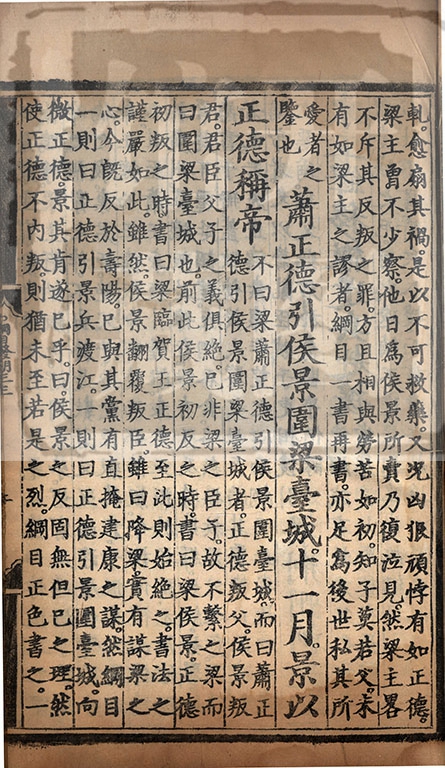 軋。愈扇其禍。是以不可救藥。又況凶狠頑悖有如正德。
梁主曾不少察。他日為侯景所賣乃復泣見。然梁主畧
不斥其反叛之罪。方且相與勞苦如初。知子莫若父。未
有如梁主之謬者。綱目一書再書。亦足為後世私其所
愛者之
鑒也
蕭正德引侯景圍梁臺城。十一月。景以
正德稱帝
不曰梁蕭正德引侯景圍臺城。而曰蕭正
德引侯景圍梁臺城者。正德叛父。侯景叛
君。君臣父子之義俱絕。已非梁之臣子。故不繫之梁而
曰圍梁臺城也。前此侯景初反之時。書曰梁侯景。正德
初叛之時。書曰梁臨賀王正德。至此則始絕之。書法之
謹嚴如此。雖然。侯景翻覆叛臣。雖曰降梁。實有謀梁之
心。今既反於壽陽。已與其黨有直掩建康之謀。然綱目
一則曰正德引景兵渡江。一則曰正德引景圍臺城。向
微正德。景其肯遂已乎。曰。侯景之反固無但已之理。然
使正德不內叛。則猶未至若是之烈。綱目正色書之。一